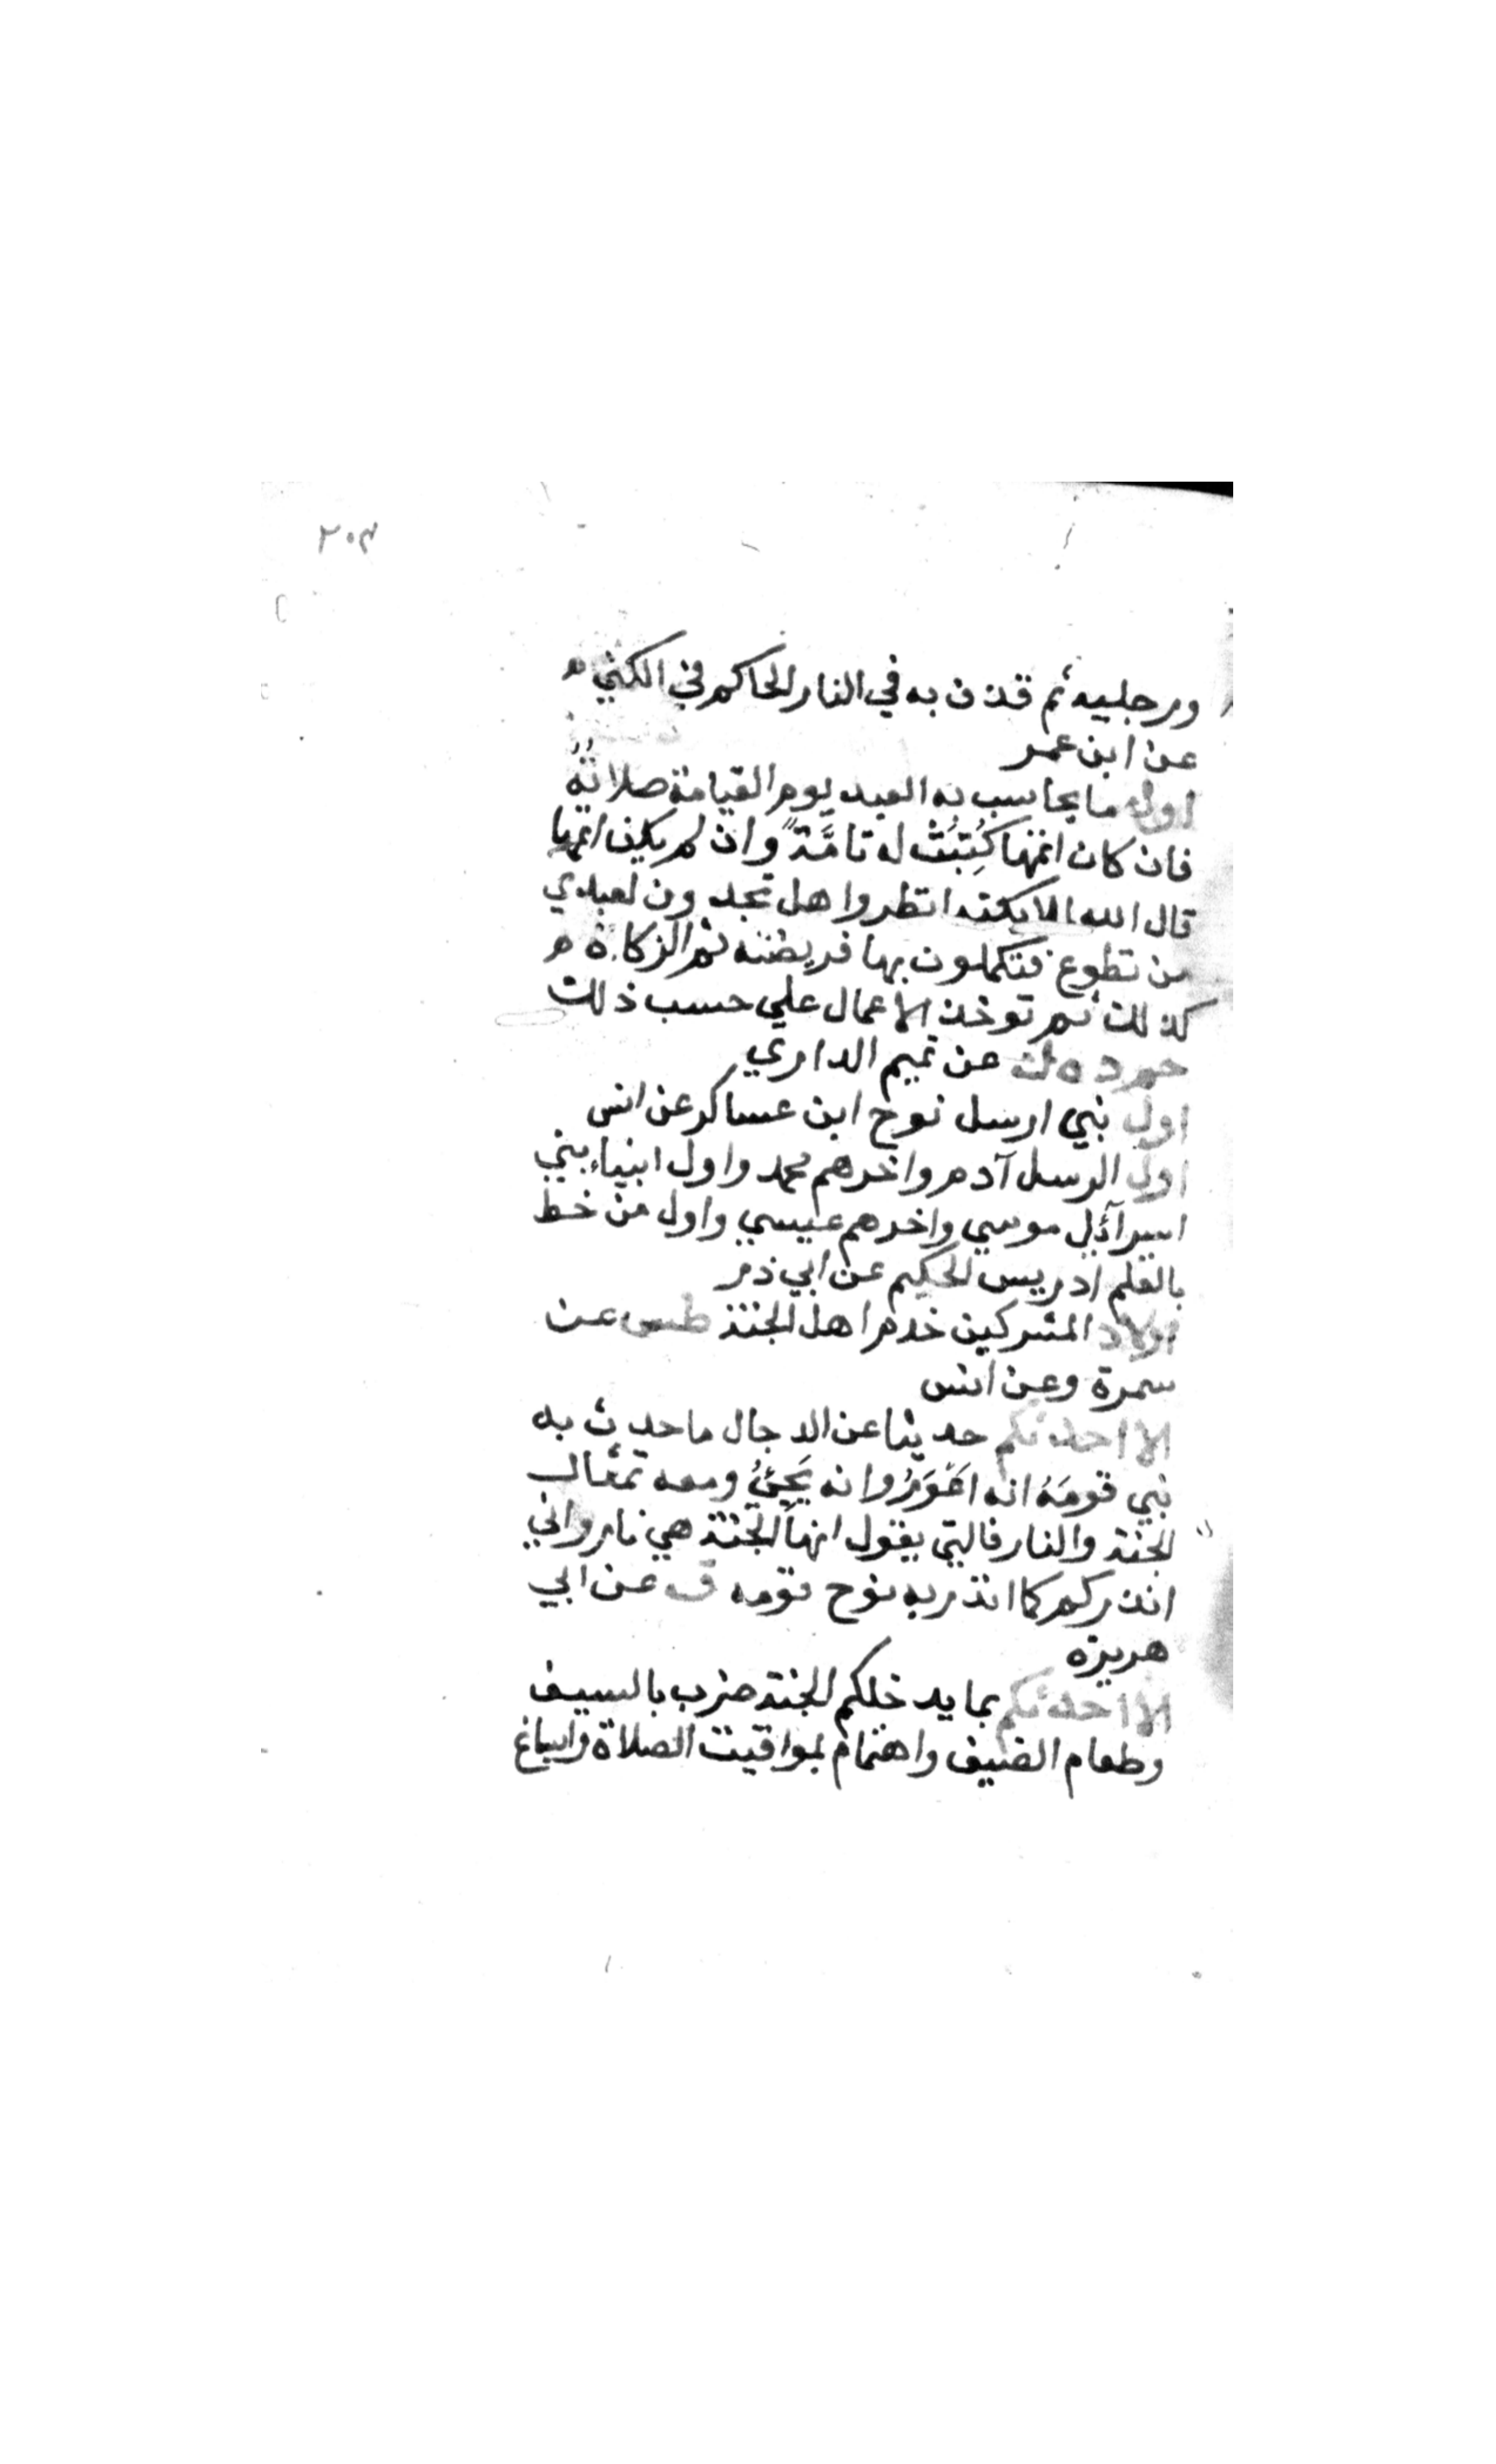 ٢٠٣
ورجليه ثم قذف به في النار الحاكم في الكنى
عن ابن عمر
اول ما يحاسب به العبد يوم القيامة صلاتُهُ
فان كان اتمها كُتِبَتْ له تامَّةً وان لم يكن اتمها
قال الله لملايكته انظروا هل تجدون لعبدي
من تطوع فتكملون بها فريضته ثم الزكاة
كذلك ثم توخذ الاعمال علي حسب ذلك
حم د ه ك عن تميم الداري
اول نبي ارسل نوح ابن عساكر عن انس
اول الرسل آدم واخرهم محمد واول انبياء بني
اسرآئيل موسي واخرهم عيسي واول من خط
بالقلم ادريس الحكيم عن ابي ذر
اولاد المشركين خدم اهل الجنة طس عن
سمرة وعن انس
الا احدثكم حديثا عن الدجال ما حدث به
نبي قومَهُ انه اعْوَرُ وانه يَجِئُ ومعه تمثال
الجنة والنار فالتي يقول انها الجنة هي نار واني
انذركم كما انذر به نوح قومه ق عن ابي
هريرة
الا احدثكم بما يدخلكم الجنة ضرب بالسيف
وطعام الضيف واهتمام لمواقيت الصلاة واسباغ